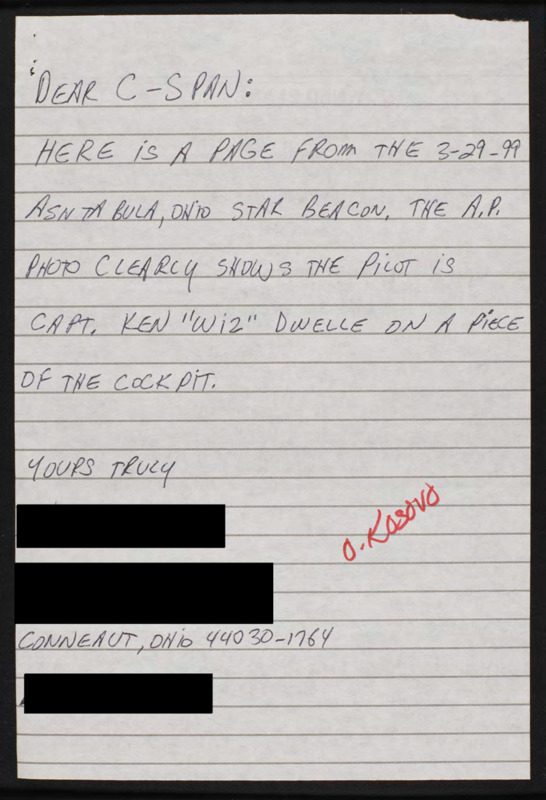 DEAR C-SPAN:
HERE iS A PAGE FROM THE 3-29-99
ASHTABULA, OHiO STAR BEACON. THE A.P.
PHOTO CLEARLY SHOWS THE PiLOT iS
CAPT. KEN "WiZ" DWELLE ON A PiECE
OF THE COCKPiT.
YOURS TRULY
O. KOSOVO
CONNEAUT, OHiO 44030-1764